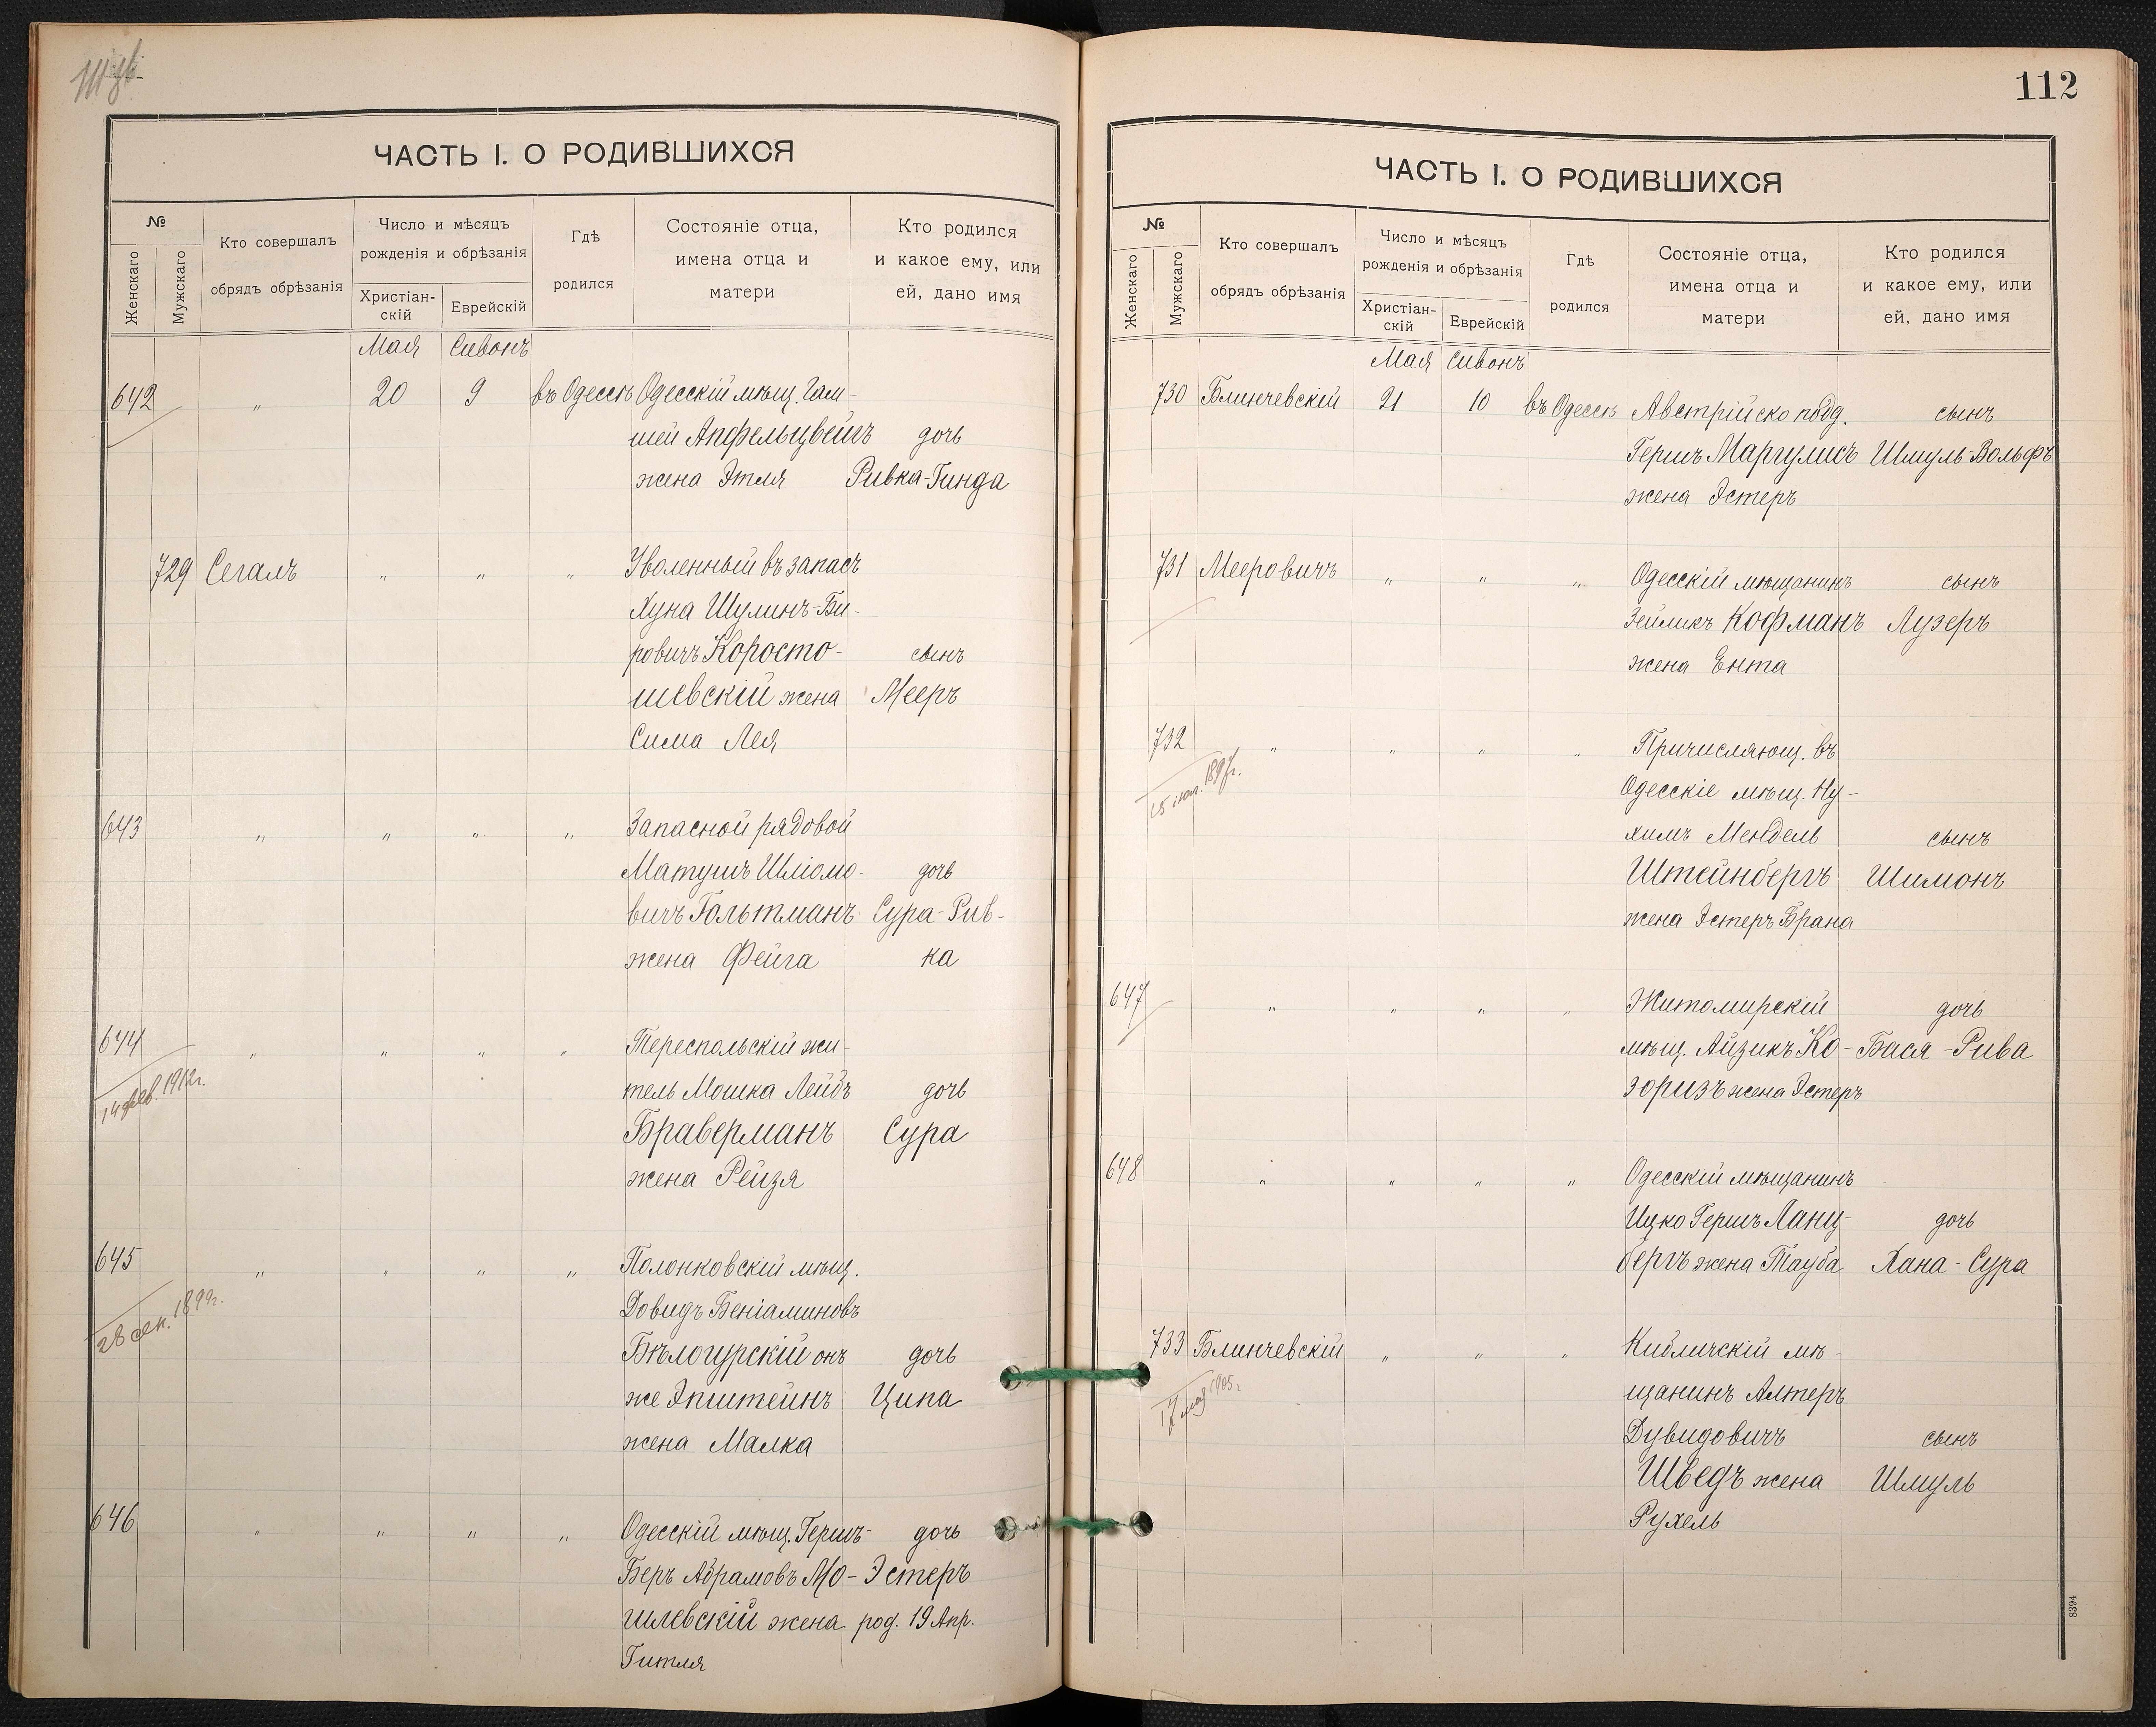 ЧАСТЬ I. О РОДИВШИХСЯ
№
Женскаго
Мужскаго
Кто совершалъ
обрядъ обрѣзанія
Число и мѣсяцъ
рожденія и обрѣзанія
Христіан-
скій
Еврейскій
Гдѣ
родился
Состояніе отца,
имена отца и
матери
Кто родился
и какое ему, или
ей, дано имя
Мая Сивонъ
642 " 20 9 въ Одессѣ Одесскій мѣщ. Гам-
шей Апфельцвейгъ дочь
жена Этля Ривка-Гинда
729 Сегалъ " " " Уволенный въ запасъ
Хуна Шулинъ-Би-
ровичъ Коросто- сынъ
шевскій жена Мееръ
Сима Лея
643 " " " " Запасной рядовой
Матушъ Шліомо- дочь
вичъ Гольтманъ Сура-Рив-
жена Фейга ка
644 " " " " Тереспольскій жи-
14 фев. 1912г. тель Мошка Лейбъ дочь
Браверманъ Сура
жена Рейзя
645 " " " " Полонковскій мѣщ.
28 1899г. Довидъ Беніаминовъ
Бѣлогурскій онъ дочь
же Эпштейнъ Ципа
жена Малка
646 " " " " Одесскій мѣщ. Гершъ- дочь
Беръ Абрамовъ Мо- Эстеръ
шлевскій жена род. 19 Апр.
Гитля
112
ЧАСТЬ I. О РОДИВШИХСЯ
№
Женскаго
Мужскаго
Кто совершалъ
обрядъ обрѣзанія
Число и мѣсяцъ
рожденія и обрѣзанія
Христіан-
скій
Еврейскій
Гдѣ
родился
Состояніе отца,
имена отца и
матери
Кто родился
и какое ему, или
ей, дано имя
Мая Сивонъ
730 Блинчевскій 21 10 въ Одессѣ Австрійско подд. сынъ
Гершъ Маргулисъ Шмуль-Вольфъ
жена Эстеръ
731 Мееровичъ " " " Одесскій мѣщанинъ сынъ
Зейликъ Кофманъ Лузеръ
жена Ента
732 " " " " Причисляющ. въ
1897г. Одесскіе мѣщ. Ну-
химъ Мендель сынъ
Штейнбергъ Шимонъ
жена Эстеръ Брана
647 " " " " Житомирскій дочь
мѣщ. Айзикъ Ко- Бася-Рива
зоризъ жена Эстеръ
648 " " " " Одесскій мѣщанинъ
Ицко Гершъ Ланц- дочь
бергъ жена Тауба Хана-Сура
733 Блинчевскій " " " Кибличскій мѣ-
17 мая 1905г. щанинъ Алтеръ
Дувидовичъ сынъ
Шведъ жена Шмуль
Рухель
8394